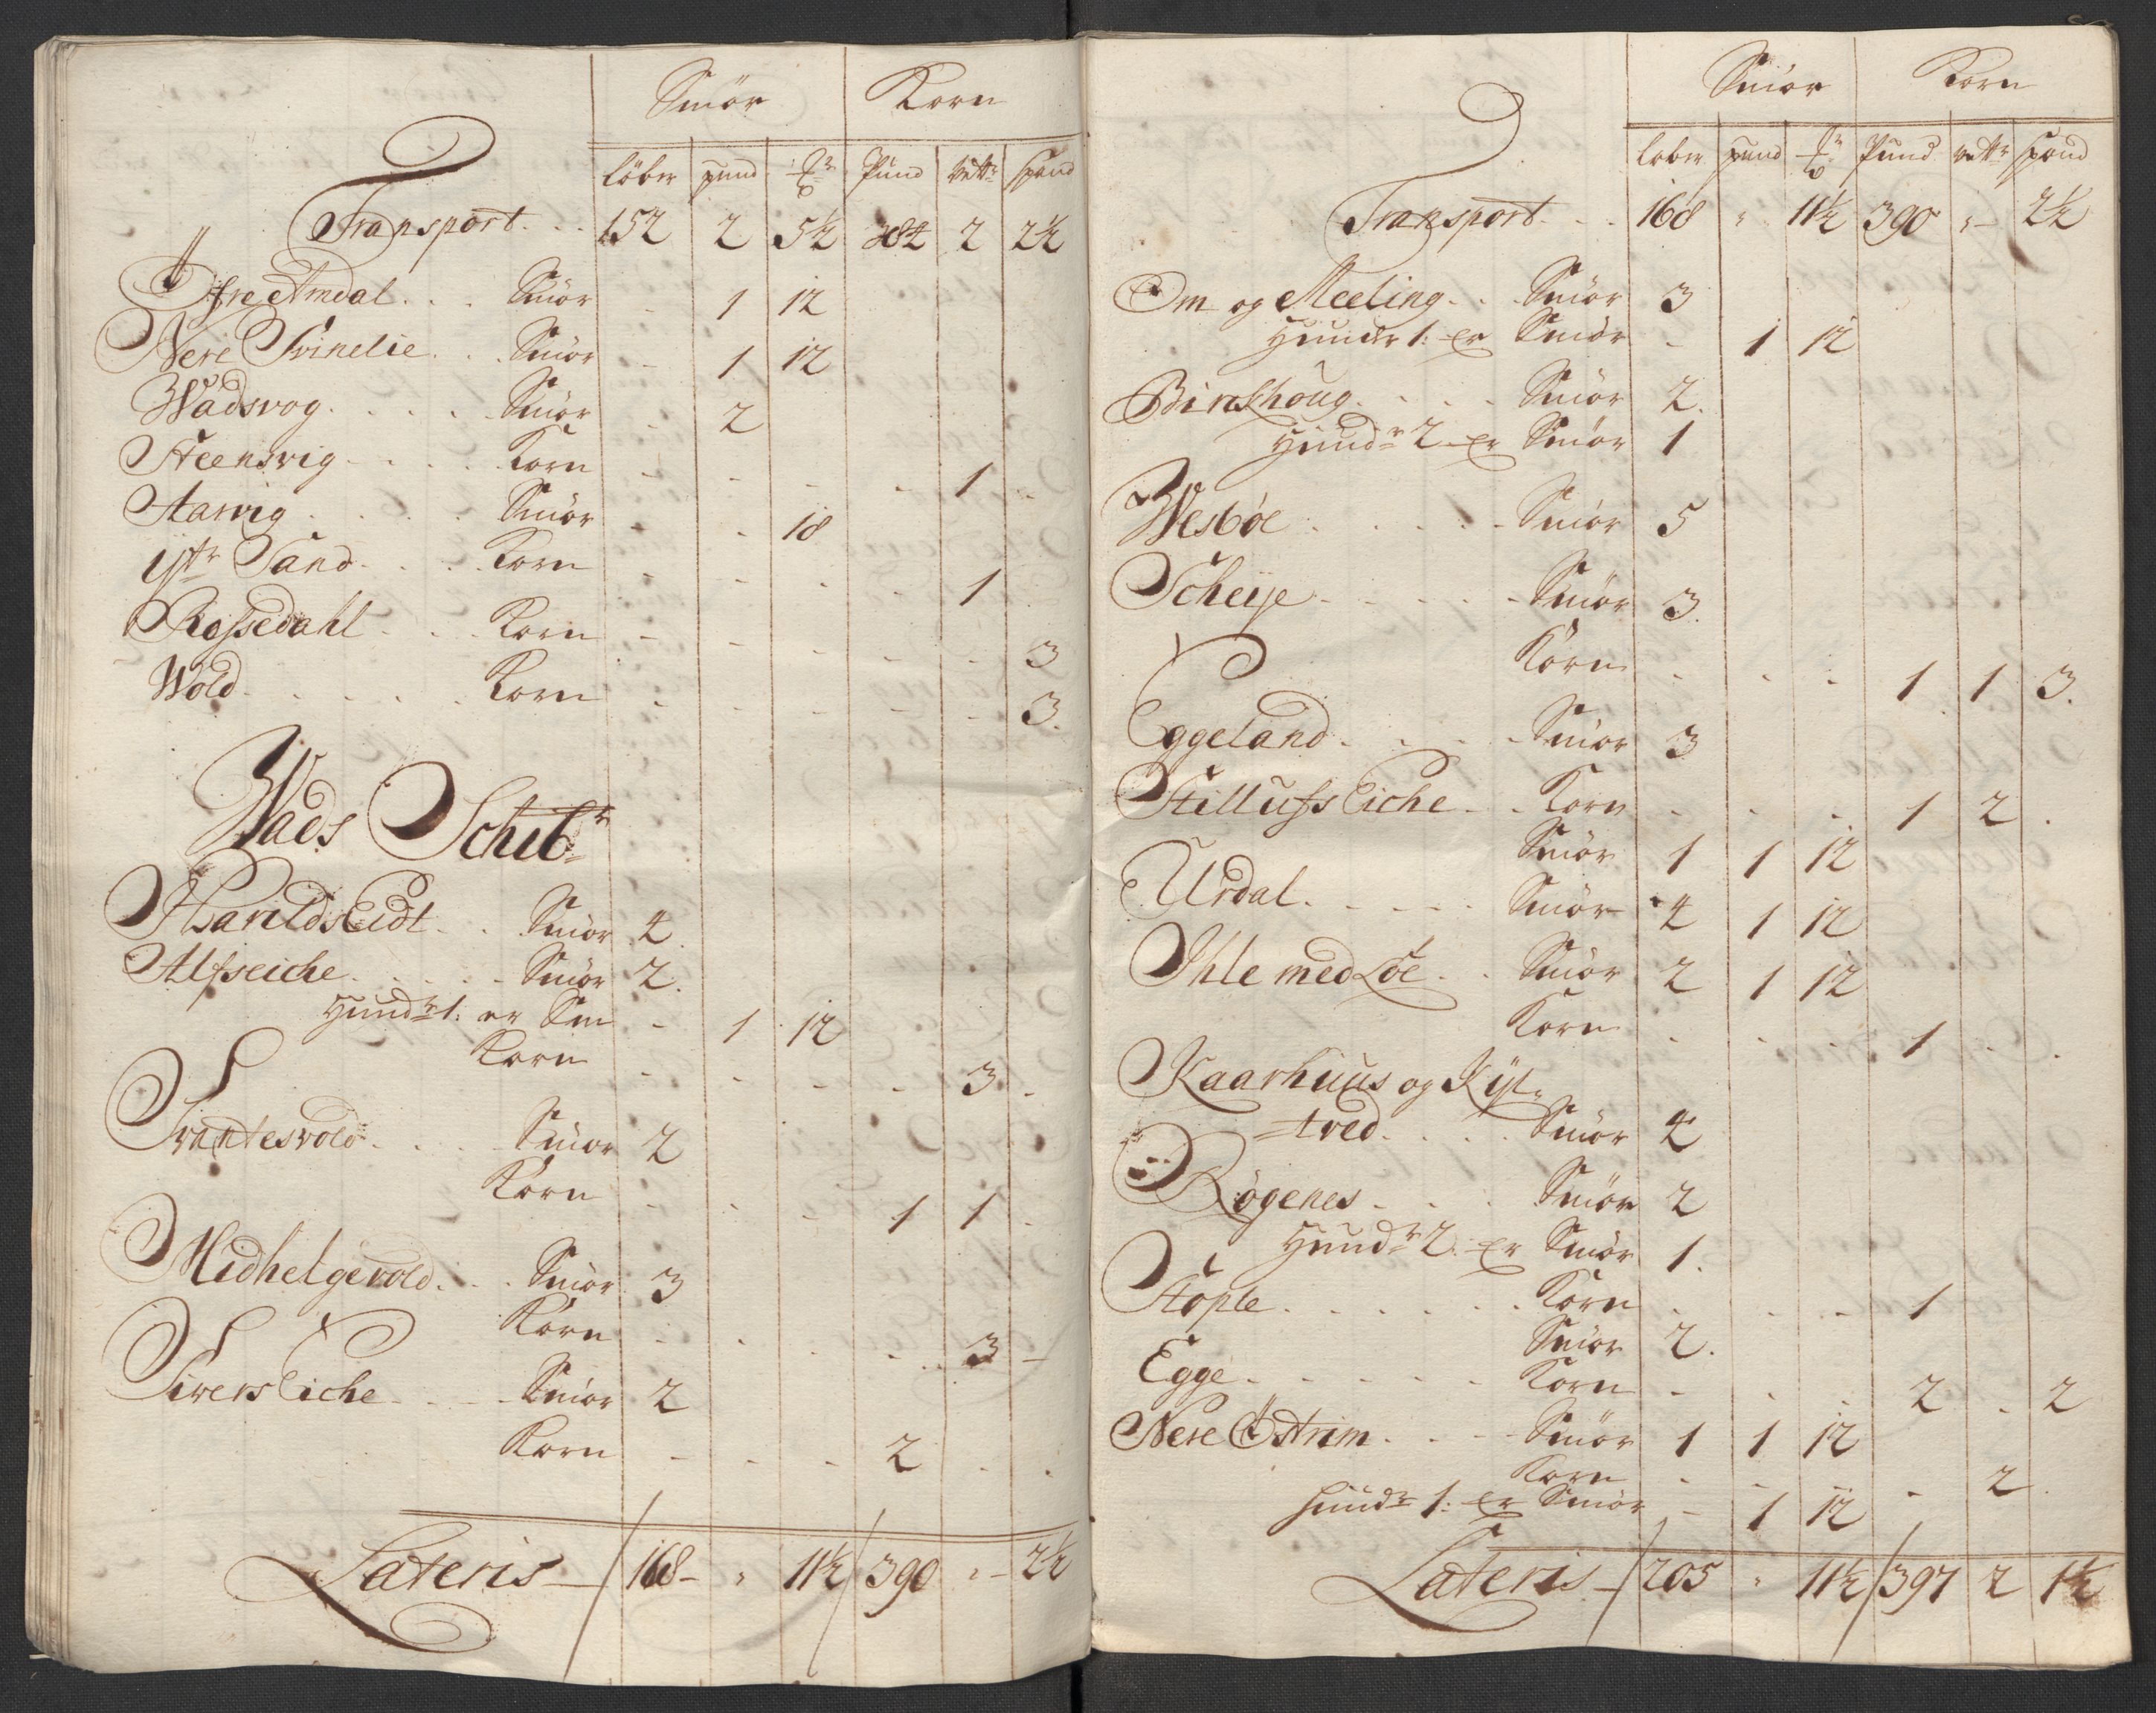 Smör Korn
löber pund Pund vett spand
Transport . . . 152 2 5½ 384 2 2½
Öfre Amdal . . . Smör - 1 12
Nere Svinelie . . Smör - 1 12
Wadsvog . . . . Smör - 2
Steensvig . . . . Korn - - - - 1 -
Aarvig . . . . Smör - - 18
ÿstr Sand . . . . Korn - - - - 1
Rossedahl . . . Korn - - - - - 3
Wold . . . . . Korn - - - - - 3.
Wads Schibr
Haraldseidt . . Smör 4.
Alfseiche . . . . Smör 2.
Hundr 1: er Sm - 1 12
Korn - - - - 3 -
Svantesvold . . . . Smör 2
Korn - - - 1 1 -
Midhelgevold . . . Smör 3
Korn - - - - 3 -
Sivers Eiche . . . . Smör 2
Korn - - - 2 - -
Lateris 168 - " 11½ 390 " - 2½
Smör Korn
löber pund Pund vettr spand
Transport . . . 168 " 11½ 390 " - 2½
Om og Meeling . . Smör 3
Hundr 1: er Smör - 1 12
Birckhoug . . . . Smör 2.
Hundr 2 er Smör 1
Wesböe . . . . . Smör 5
Scheije . . . . . Smör 3.
Korn - - - 1 1 3.
Eggeland . . . . Smör 3
Stillufs Eiche . . Korn - - - 1 2 .
Smör 1 1 12
Urdal . . . . . Smör 4 1 12
Ihle med Löe . . Smör 2 1 12
Korn - - - 1 - -
Kaarhuus og Kÿst=
=tved . . . . Smör 4
Røgenes . . . . Smör 2
Hundr 2. er Smör 1.
Støple . . . . . . Korn - - - 1
Smör 2.
Egge . . . . . Korn - - - 2 - 2
Nere Östrim . . . Smör 1 1 12
Korn - - - - 2.
Hundr 1: er Smör - 1 12
Lateris 205 " 11½ 397 2 1½